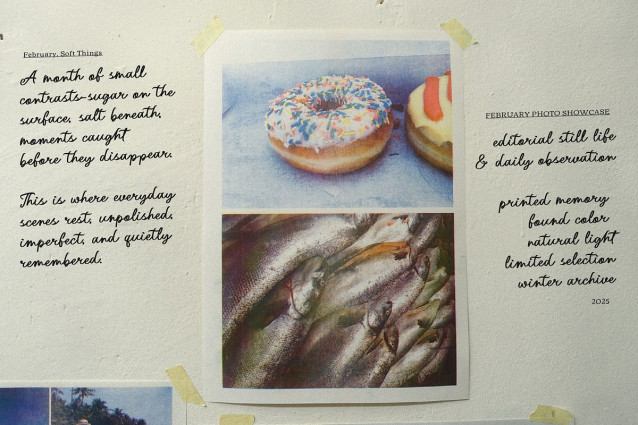 February, Soft Things
A month of small
contrasts-sugar on the
surface, salt beneath,
moments caught
before they disappear.
This is where everyday
scenes rest, unpolished,
imperfect, and quietly
remembered.
FEBRUARY PHOTO SHOWCASE
editorial still life
& daily observation
printed memory
found color
natural light
limited selection
winter archive
2025